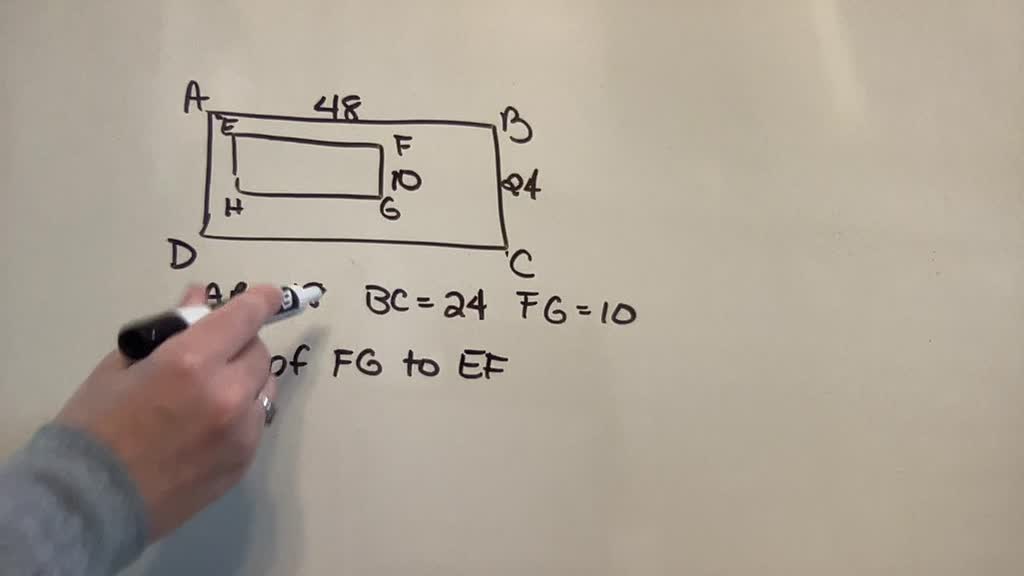 A 48 B
E F
10 24
H G
D C
BC = 24 FG = 10
of FG to EF